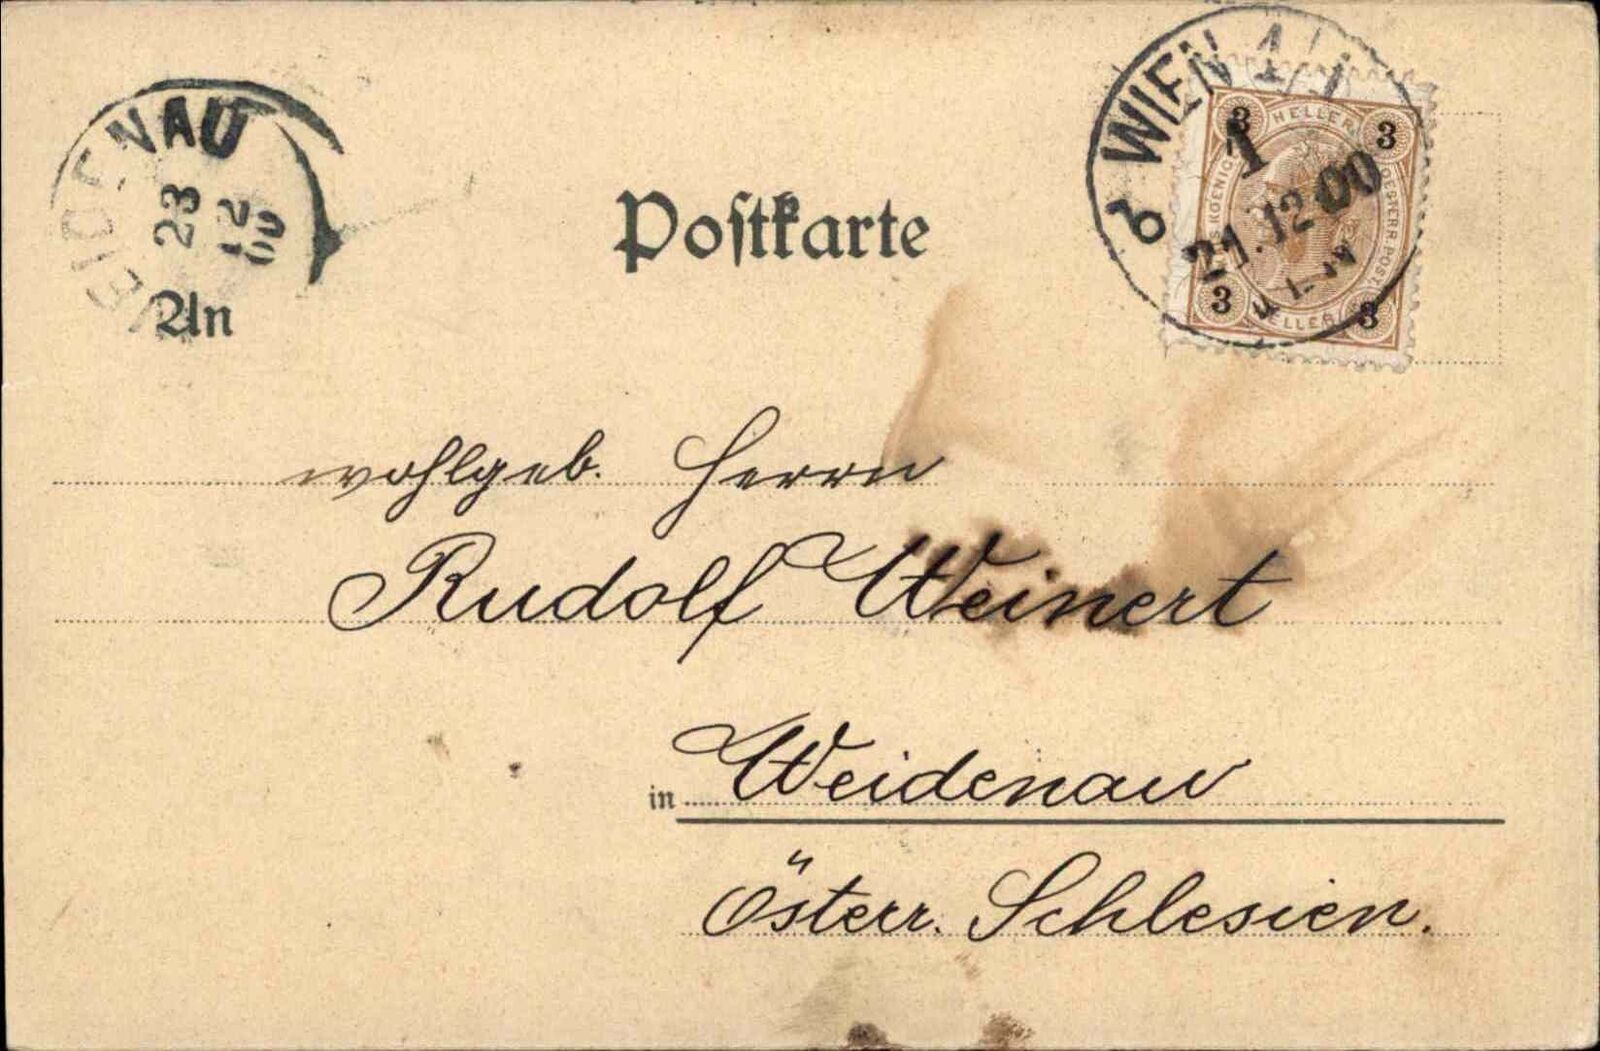 WEIDENAU
23
12
00
Postkarte
WIEN 1/1
1
21.12 00
3 HELLER 3
KAIS. KOENIGL. OESTERR. POST
3 HELLER 3
An
wohlgeb. Herrn
Rudolf Weinert
in Weidenau
Österr. Schlesien.